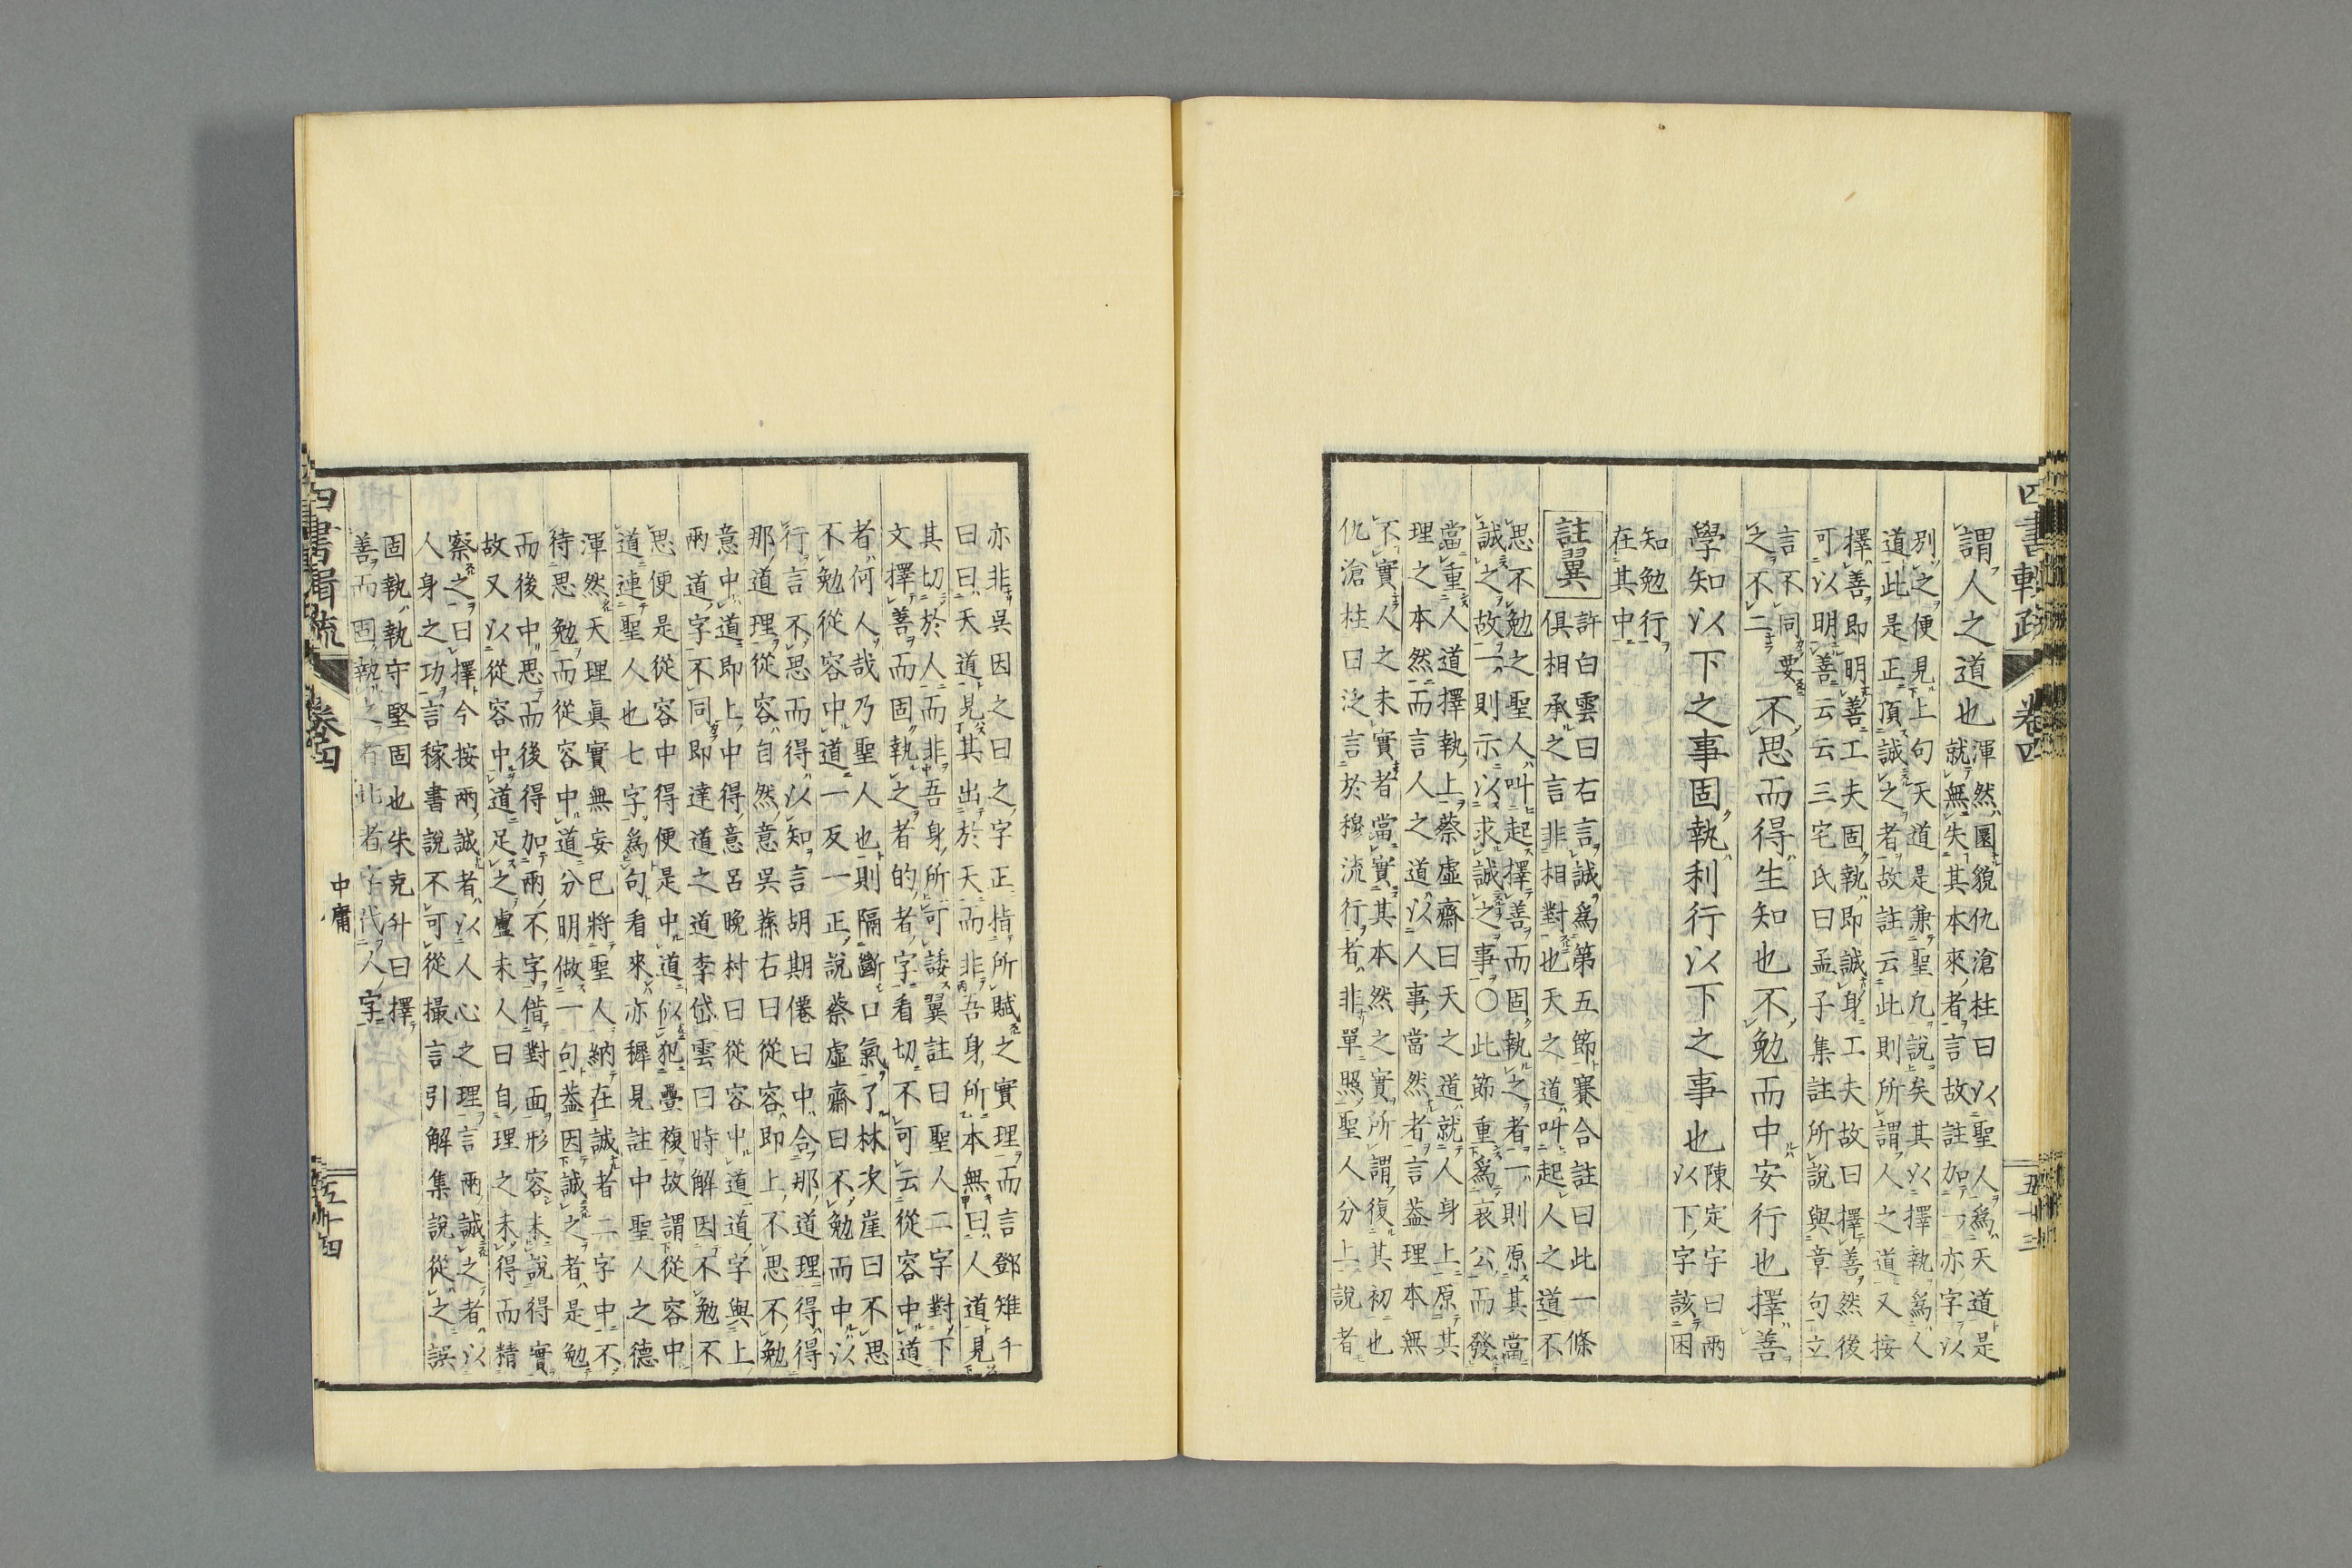 謂人之道也
渾然圂貌仇滄柱曰以聖人爲天道是
就無失其本來者言故註加一亦字以
別之便見上句天道是兼聖凢說矣其以擇執爲人
道此是正頂誠之者故註云此則所謂人之道又按
擇善即明善工夫固執即誠身工夫故曰擇善然後
可以明善云云三宅氏曰孟子集註所說與章句立
言不同要
之不二
不思而得生知也不勉而中安行也擇善
學知以下之事固執利行以下之事也
陳定宇曰兩
以下字該困
知勉行
在其中
註翼
許白雲曰右言誠爲第五節賽合註曰此一條
俱相承之言非相對也天之道叫起人之道不
思不勉之聖人叫起擇善而固執之者一則原其當
誠之故一則示以求誠之事○此節重爲哀公而發
當重人道擇執上蔡虛齋曰天之道就人身上原其
理之本然而言人之道以人事當然者言葢理本無
不實人之未實者當實其本然之實所謂復其初也
仇滄柱曰泛言於穆流行者非單照聖人分上說者
四書輯疏 卷四 五十三
亦非吳因之曰之字正指所賦之實理而言鄧雉千
曰曰天道見其出於天而非吾身所本無曰人道見
其切於人而非吾身所可諉翼註曰聖人二字對下
文擇善而固執之者的者字看切不可云從容中道
者何人哉乃聖人也則隔斷口氣了林次崖曰不思
不勉從容中道一反一正說蔡虛齋曰不勉而中以
行言不思而得以知言胡期僊曰中合那道理得得
那道理從容自然意吳蓀右曰從容即上不思不勉
意中道即上中得意呂晚村曰從容中道道字與上
兩道字不同即達道之道李岱雲曰時解因不勉不
思便是從容中得便是中道似犯疊複故謂從容中
道連聖人也七字爲句看來亦穉見註中聖人之德
渾然天理眞實無妄已將聖人納在誠者二字中不
待思勉而從容中道分明做一句葢因誠之者是勉
而後中思而後得加兩不字借對面形容未說得實
故又以從容中道足之盧未人曰自理之未得而精
察之曰擇今按兩誠者以人心之理言兩誠之者以
人身之功言稼書說不可從撮言引解集說從之誤
固執執守堅固也朱克升曰擇
善而固執之者此者字代人字
四書輯疏 卷四 中庸 五十四